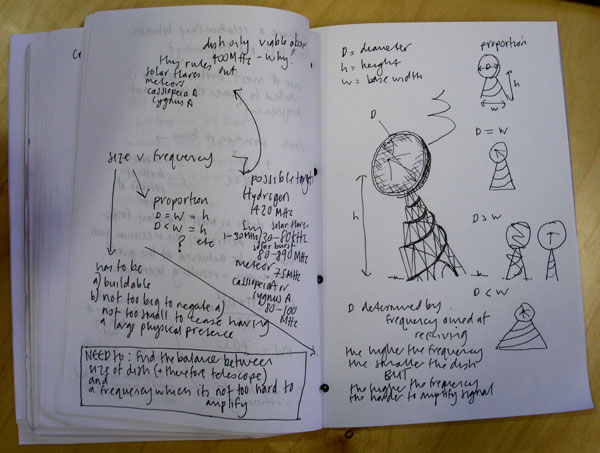 dish only viable above
400MHz - why?
this rules out
solar flares
meteors
cassiopeia A
cygnus A
size v. frequency
proportion
D = W = h
D < W = h
? etc
possible target
Hydrogen
1420 MHz
Sun
solar flares
solar burst
80-890MHz
meteor
75MHz
cassiopeia A or
cygnus A
80-100
MHz
has to be
a) buildable
b) not too big to negate a)
not too small to cease having
a large physical presence
NEED to: find the balance between
size of dish (& therefore telescope)
and
a frequency which is not too hard to
amplify
D = diameter
h = height
w = base width
proportion
D
h
w
D
h
D = W
D > W
D < W
D determined by
frequency aimed at
receiving
the higher the frequency
the smaller the dish
BUT
the higher the frequency
the harder to amplify signal